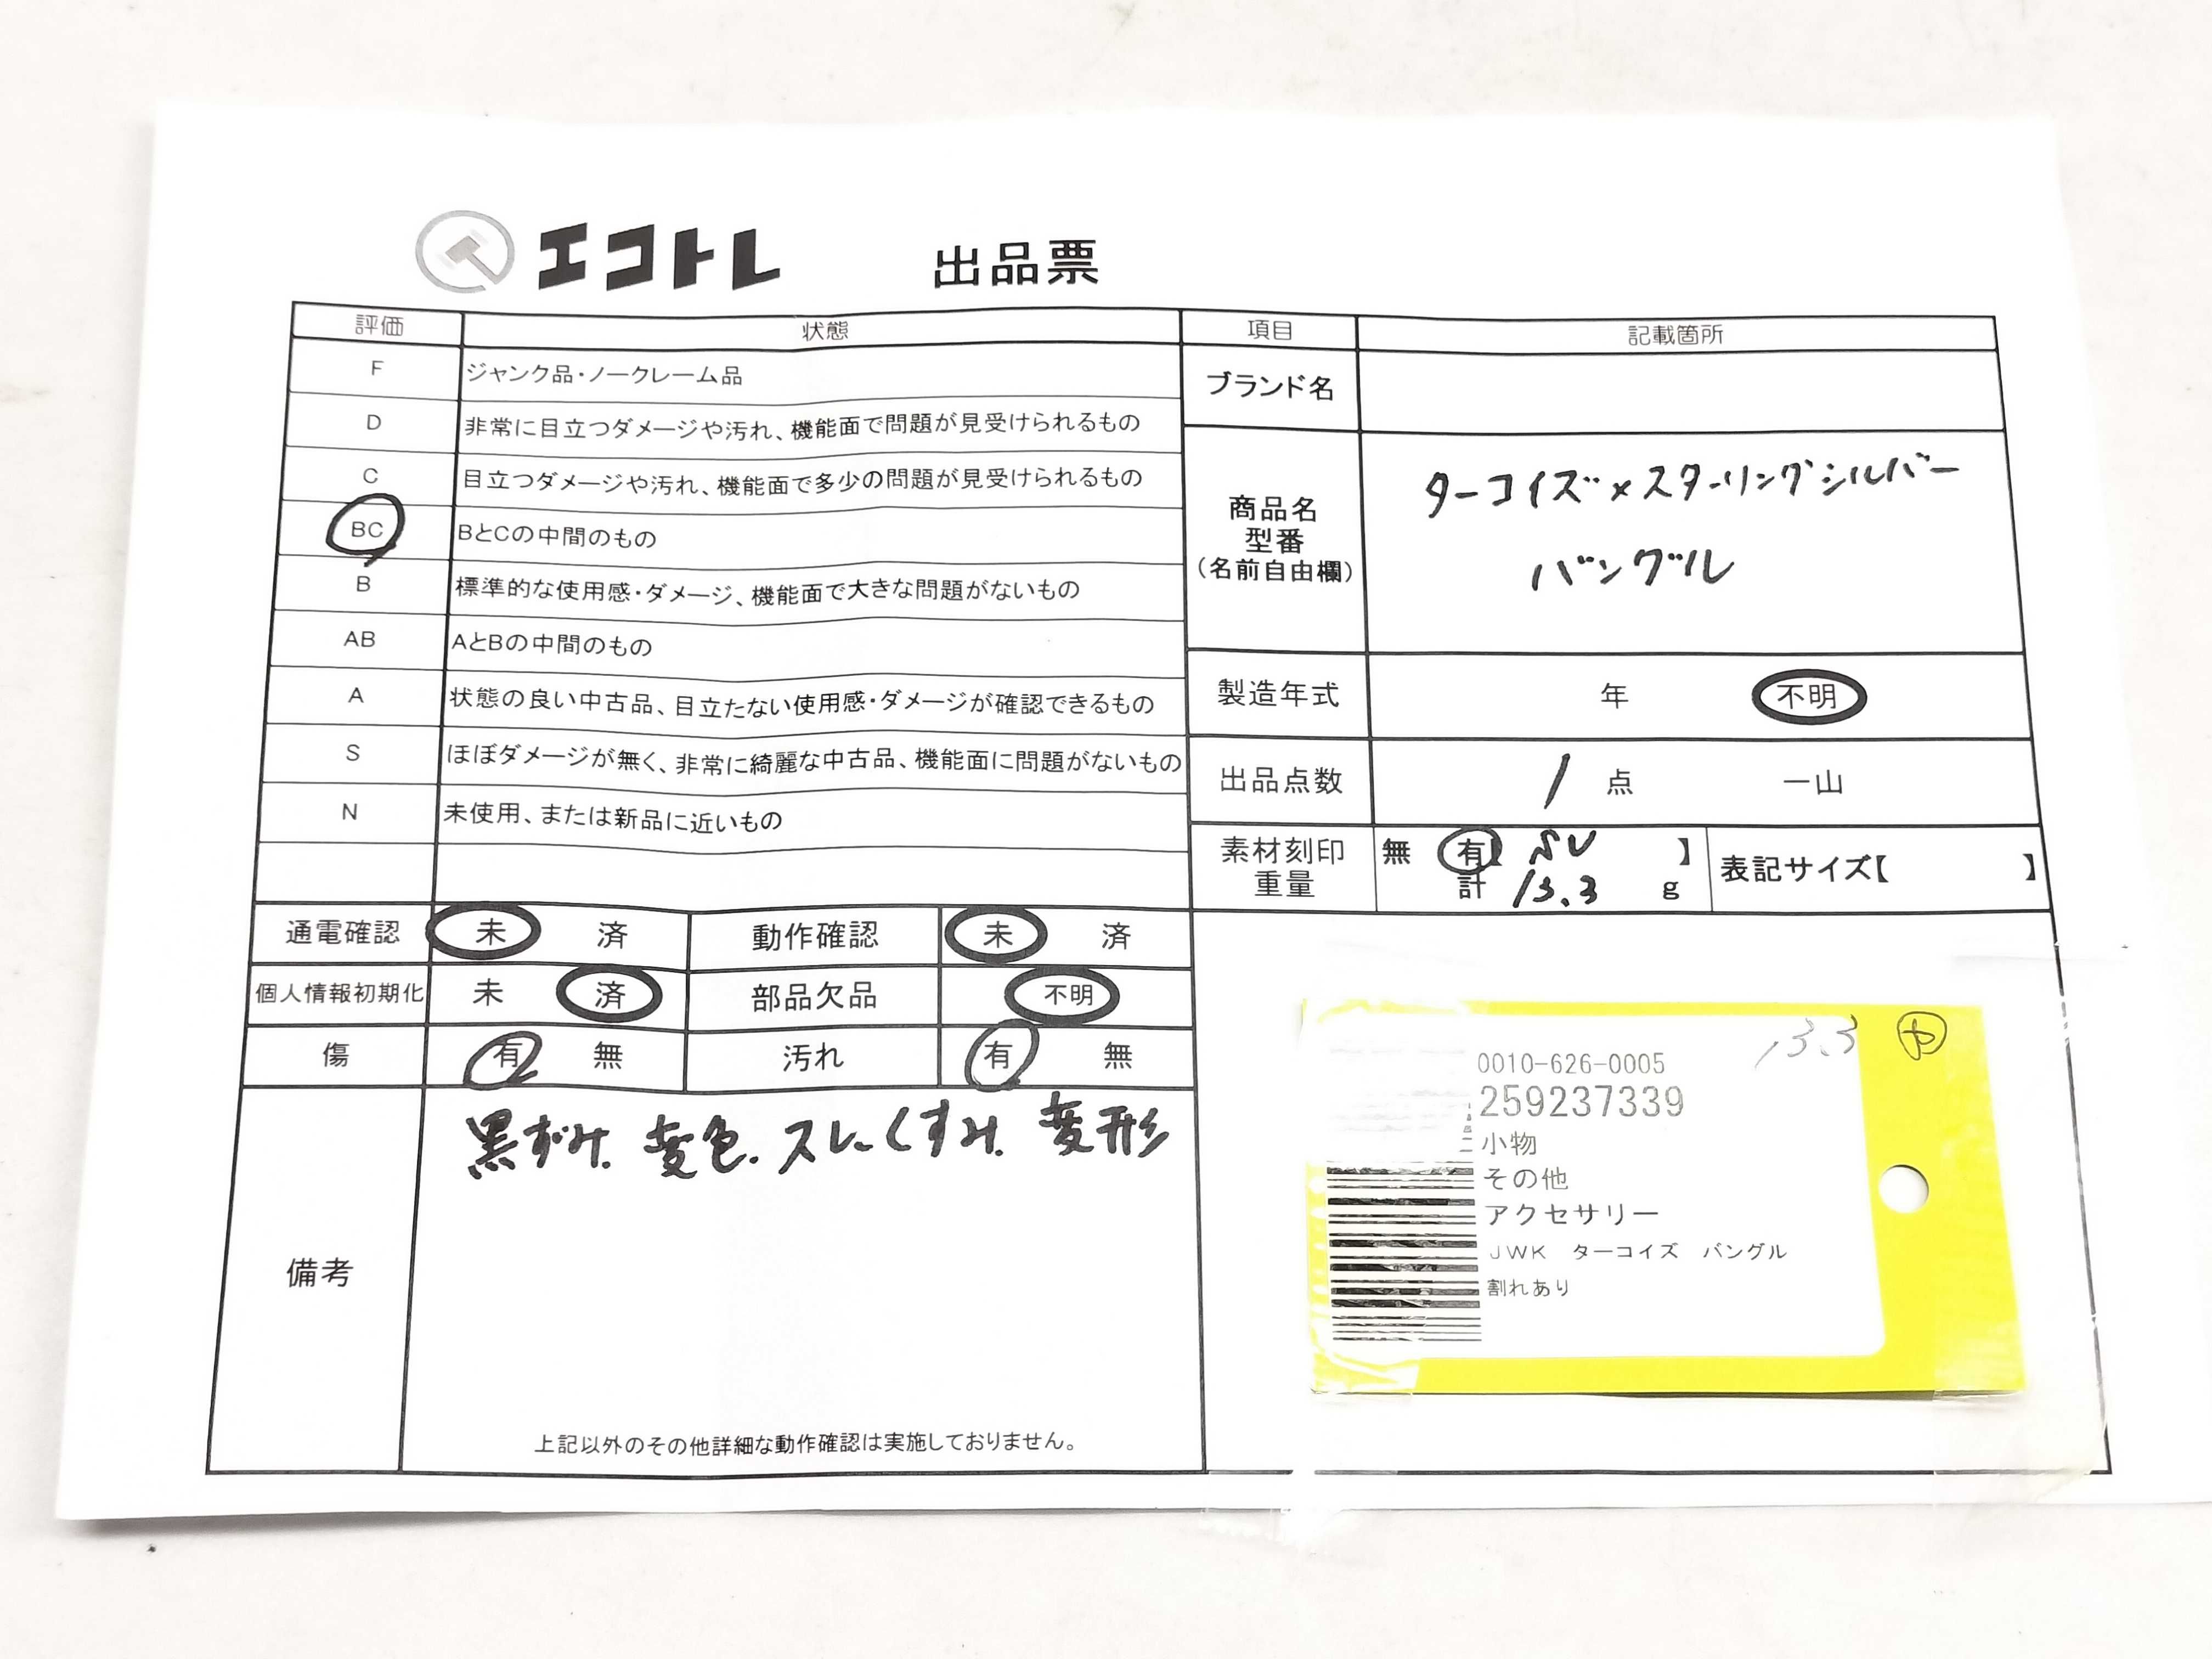 エコトレ 出品票
評価 状態 項目 記載箇所
F ジャンク品・ノークレーム品
D 非常に目立つダメージや汚れ、機能面で問題が見受けられるもの
C 目立つダメージや汚れ、機能面で多少の問題が見受けられるもの
BC BとCの中間のもの
B 標準的な使用感・ダメージ、機能面で大きな問題がないもの
AB AとBの中間のもの
A 状態の良い中古品、目立たない使用感・ダメージが確認できるもの
S ほぼダメージが無く、非常に綺麗な中古品、機能面に問題がないもの
N 未使用、または新品に近いもの
ブランド名
商品名
型番
(名前自由欄)
ターコイズ×スターリングシルバー
バングル
製造年式 年 不明
出品点数 1 点 一山
素材刻印 無 有【 SV 】
重量 計 13.3 g
表記サイズ【 】
通電確認 未 済 動作確認 未 済
個人情報初期化 未 済 部品欠品 不明
傷 有 無 汚れ 有 無
備考
黒ずみ、変色、スレ、くすみ、変形
上記以外のその他詳細な動作確認は実施しておりません。
13.3
0010-626-0005
259237339
小物
その他
アクセサリー
JWK ターコイズ バングル
割れあり